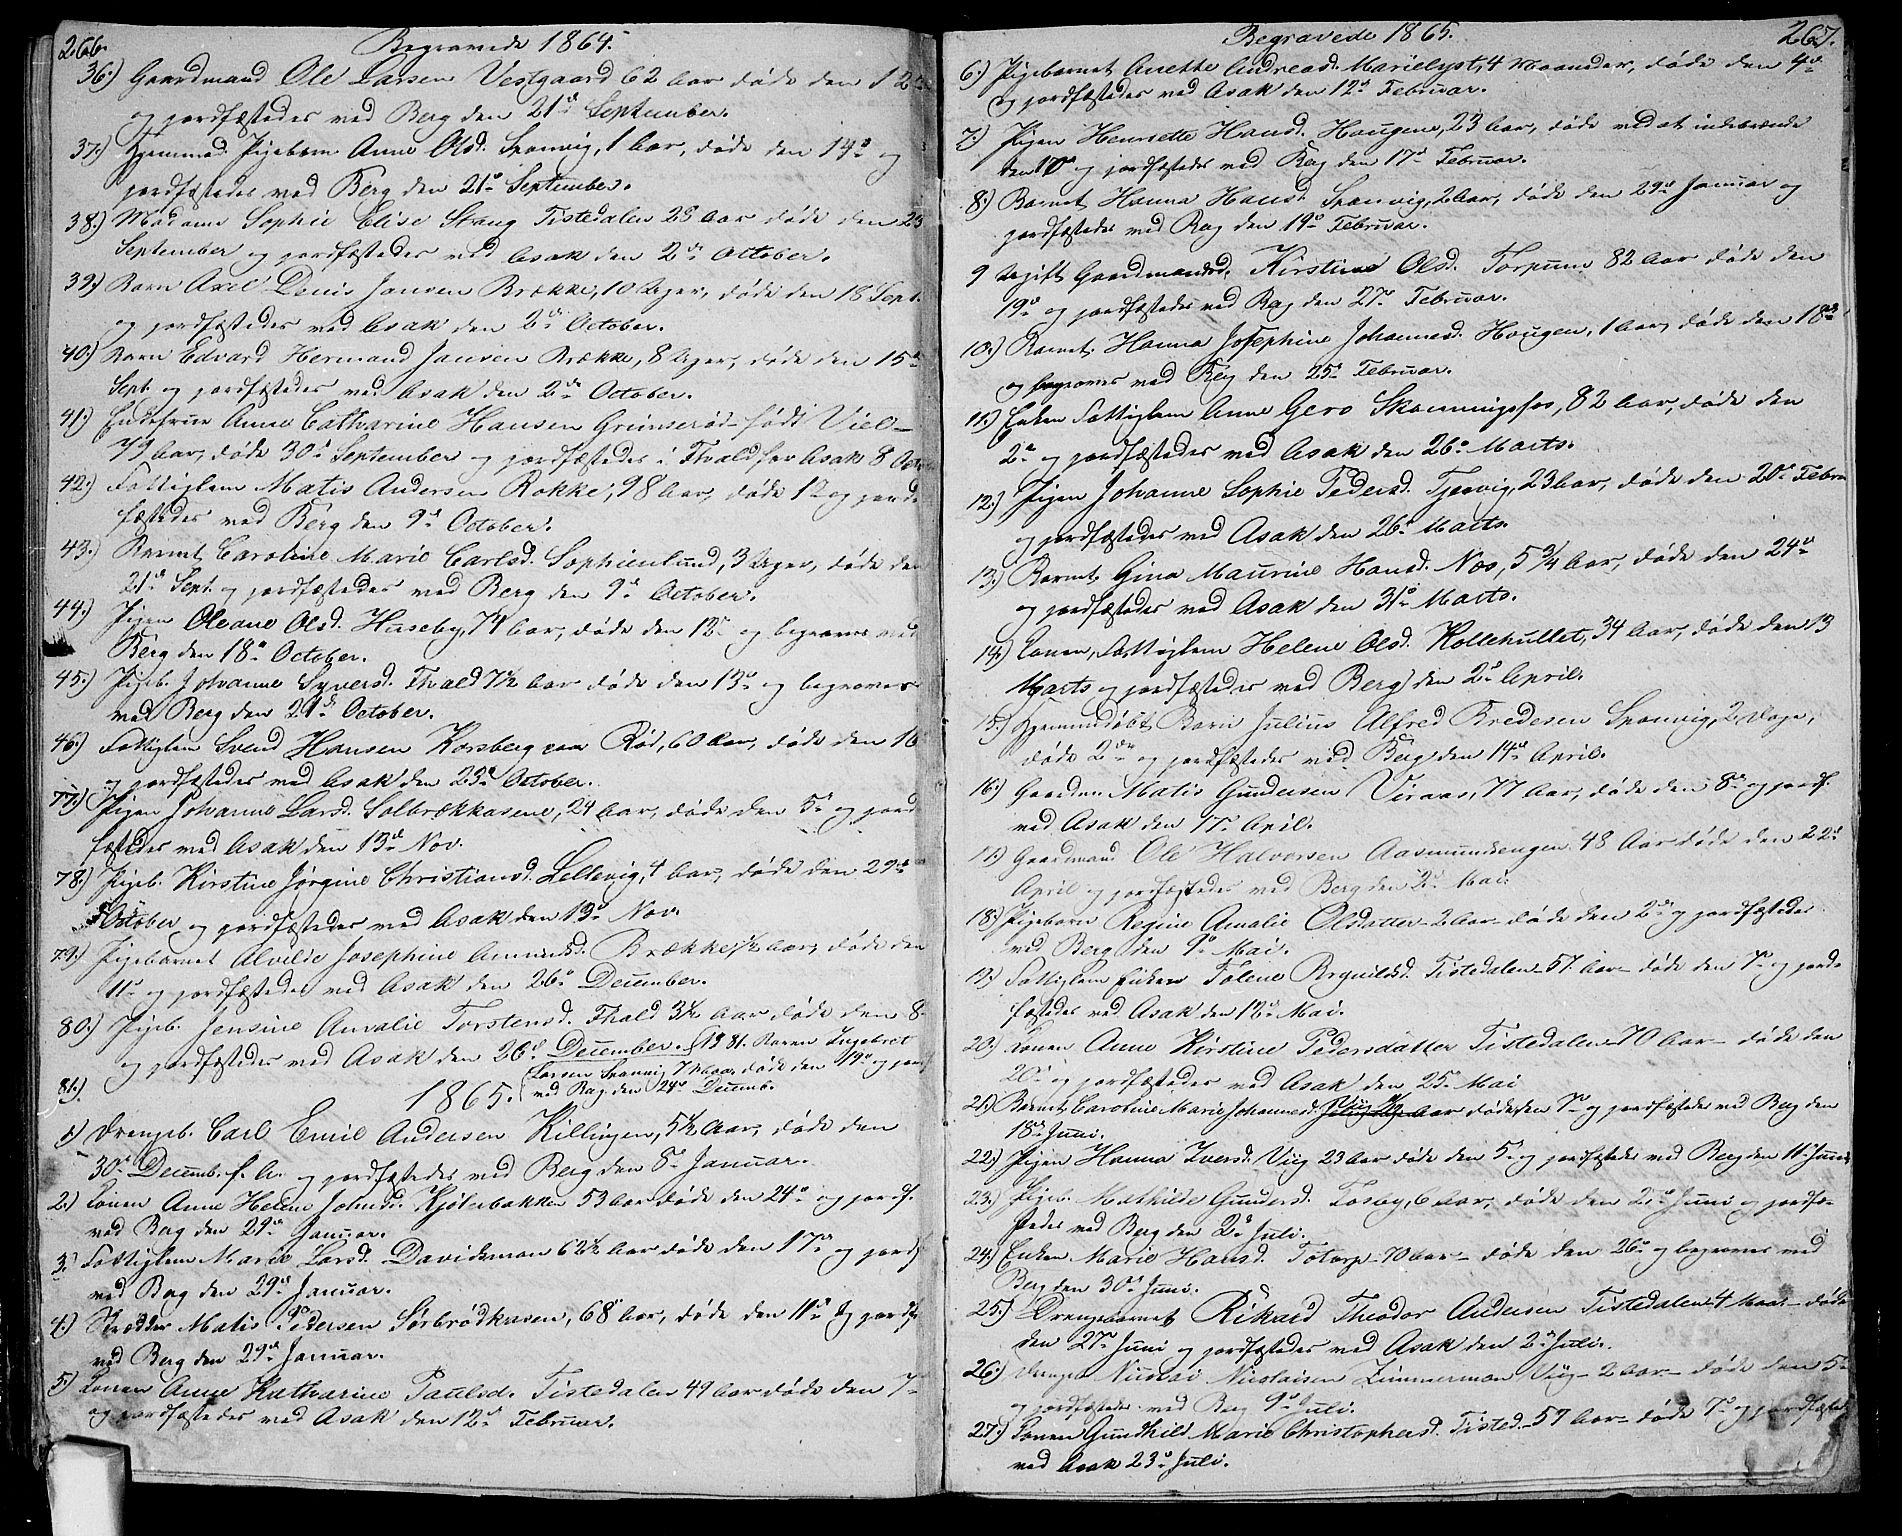 266.
Begravede 1864.
36.) Gaardmand Ole Larsen Vestgaard 62 Aar døde den 12te
og jordfæstedes ved Berg den 21de September.
37.) Hjemmed. Pigebarn Anne Olsd. Sponvig, 1 Aar, døde den 14de og
jordfæstedes ved Berg den 21de September.
38.) Madame Sophie Elise Stang Tistedalen 28 Aar døde den 23
September og jordfæstedes ved Asak den 2den October.
39.) Barn Axel Denis Jansen Brække, 10 Uger, døde den 18 Sept.
og jordfæstedes ved Asak den 2den October.
40.) Barn Edvard Hermand Jansen Brække, 8 Uger, døde den 15de
Sept. og jordfæstedes ved Asak den 2den October.
41.) Enkefrue Anne Cathrarine Hansen Grimserød født Viel
79 Aar, døde 30te September og jordfæstedes i Fhald for Asak 8 Octo
42.) Fattiglem Matis Andersen Rokke, 98 Aar, døde 12 og jord
fæstedes ved Berg den 9de October.
43.) Barnet Caroline Marie Carlsd. Sophienlund, 3 Uger, døde den
21de Sept. og jordfæstedes ved Berg den 9de October.
44.) Pigen Oleane Olsd. Huseby, 74 Aar, døde den 12te og begraves ved
Berg den 18de October.
45.) Pigeb. Johanne Syversd. Fhald 7½ Aar døde den 13de og begraves
ved Berg den 21de October.
46.) Fattiglem Svend Hansen Korsberg Rød, 60 Aar, døde den 16
og jordfæstedes ved Asak den 23de October.
77.) Pigen Johanne Larsd. Solbrækkasene, 24 Aar, døde den 5te og jord
fæstedes ved Asak den 13de Nov.
78.) Pigeb. Kirstine Jørgine Christiansd. Lellevig, 4 Aar, døde den 29de
October og jordfæstedes ved Asak den 13de Nov.
79.) Pigebarnet Alvilde Josephine Amunds. Brække, ½ Aar, døde den
11te og jordfæstedes ved Asak den 26de December.
80.) Pigeb. Jensine Amalie Torstensd. Fhald 3½ Aar døde den 8
og jordfæstedes ved Asak den 26de December. 81. Barn Ingebret
81.) Larsen Sponvig 7 Maan. døde den 19de og jordf
1865. ved Berg den 24de Decemb.
1.) Drengeb. Carl Emil Andersen Killingen, 5½ Aar, døde den
30te Decemb. f. A. og jordfæstedes ved Berg den 8de Januar.
2.) Konen Anne Helene Johnsd. Kjølerbakken 53 Aar døde den 24de og jordf.
ved Berg den 29de Januar.
3.) Fattiglem Marie Larsd. Davidsmon 62½ Aar døde den 17de og jordf
ved Berg den 29de Januar.
4.) Skrædder Matis Pedersen Sørbrødkasen, 68 Aar, døde den 11te og jordfæ
ved Berg den 29de Januar.
5.) Konen Anne Katharine Paulsd. Tistedalen 49 Aar døde den 7de
og jordfæstedes ved Asak den 12te Februar.
267.
Begravede 1865.
6.) Pigebarnet Anette Andreasd. Marielyst, 4 Maaneder, døde den 4de
og jordfæstedes ved Asak den 12te Februar.
7.) Pigen Henriette Hansd. Haugene, 23 Aar, døde ved at indebrænde
den 10de og jordfæstedes ved Berg den 17de Februar.
8.) Barnet Hanna Hansd. Sponvig, 2 Aar, døde den 29de Januar og
jordfæstedes ved Berg den 19de Februar.
9 Ugift Gaardmandsd. Kirstine Olsd. Torpum 82 Aar døde den
19de og jordfæstedes ved Berg den 27de Februar.
10.) Barnet Hanna Josephine Johannesd. Haugen, 1 Aar, døde den 18de
og begraves ved Berg den 25de Februar.
11.) Enken Fattiglem Anne Gero Skonningsfos, 82 Aar, døde den
2den og jordfæstedes ved Asak den 26de Marts.
12.) Pigen Johanne Sophie Pedersd. Tjærvig, 23 Aar, døde den 20de Februar
og jordfæstedes ved Asak den 26de Marts.
13.) Barnet Gina Maurine Hansd. Næs, 5¾ Aar, døde den 24de
og jordfæstedes ved Asak den 31te Marts.
14.) Konen, Fattiglem Helene Olsd. Kollehullet, 34 Aar, døde den 13
Marts og jordfæstedes ved Berg den 2den April.
15.) Hjemmedøbt Barn Julius Alfred Bredesen Sponvig, 2 Dage,
døde 2den og jordfæstedes ved Berg den 14de April.
16.) Gaardm. Matis Gundersen Viraas, 77 Aar, døde den 8de og jordf.
ved Asak den 17de April.
17.) Gaardmand Ole Halvorsen Aasmundsengen 48 Aar døde den 22de
April og jordfæstedes ved Berg den 2den Mai.
18.) Pigebarn Regine Amalie Olsdatter 2 Aar døde den 2den og jordfæstedes
ved Berg den 9de Mai.
19.) Fattiglem Enken Tolene Brynilds. Tistedalen 57 Aar døde den 7de og jord-
fæstedes ved Asak den 12te Mai.
20.) Konen Anne Kirstine Pedersdatter Tistedalen 70 Aar døde den
20de og jordfæstedes ved Asak den 25de Mai
21.) Barnet Caroline Marie Johannesd. Viig ½ Aar døde den 7de og jordfæstedes ved Berg den
18de Juni.
22.) Pigen Hanna Iversd. Viig 23 Aar døde den 5te og jordfæstedes ved Berg den 11te Juni
23.) Pigeb. Mathilde Gundersd. Fosby, 6 Aar, døde den 21de Juni og jordfæ-
stedes ved Berg den 2den Juli.
24.) Enken Marie Hansd. Totorp 70 Aar døde den 26de og begraves ved
Berg den 30te Juni.
25.) Drengebarnet Rikard Theodor Andersen Tistedalen 4 Maan. døde
den 27de Juni og jordfæstedes ved Asak den 2den Juli.
26.) Drengen Nicolai Nicolaisen Zimmerman Viig 2 Aar døde den 5te
og jordfæstedes ved Berg 9de Juli.
27.) Konen Gundhild Marie Christophersd. Tisted. 57 Aar døde 7de og jordfæsted
ved Asak 23de Juli.